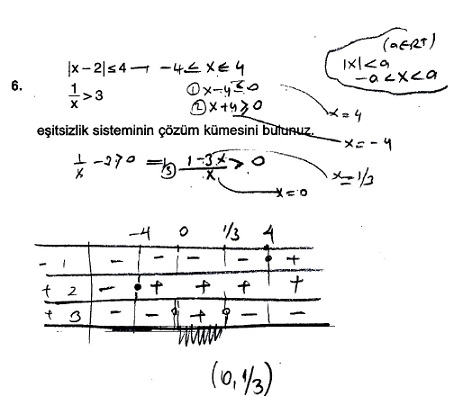 (a∈R+)
|x| < a
-a < x < a
6. |x − 2| ≤ 4 → -4 ≤ x ≤ 4
1/x > 3 ① x-4 ≤ 0
② x+4 ≥ 0 x=4
eşitsizlik sisteminin çözüm kümesini bulunuz. x=-4
1/x - 3 > 0 = ③ 1-3x/x > 0 x=1/3
x=0
-4 0 1/3 4
- 1 - - - - +
+ 2 - + + + +
+ 3 - - + - -
(0, 1/3)